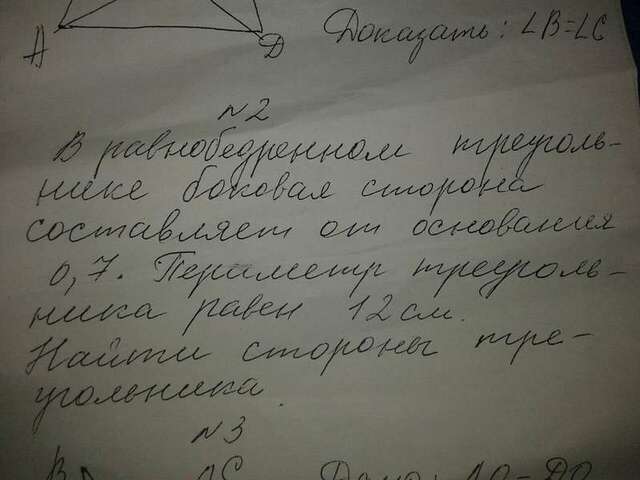 А
Д
Доказать: ∠B=∠C
N2
В равнобедренном треуголь-
нике боковая сторона
составляет от основания
0,7. Периметр треуголь-
ника равен 12 см.
Найти стороны тре-
угольника.
N3
B
C
Дано: AO=DO